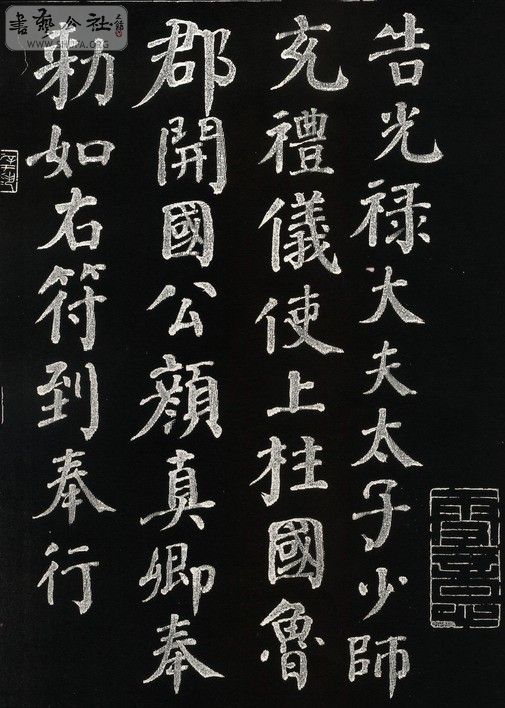 告光禄大夫太子少師
充禮儀使上柱國魯
郡開國公顔真卿奉
勑如右符到奉行
書藝公社
WWW.SHUFA.ORG